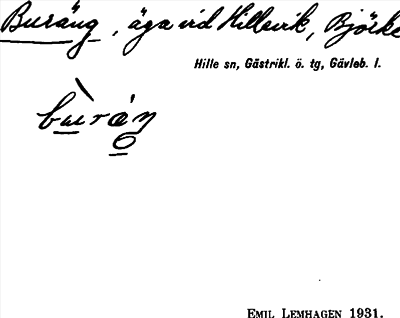 Buräng, äga vid Hillevik, Björke
Hille sn, Gästrikl. ö. tg, Gävleb. l.
EMIL LEMHAGEN 1931.